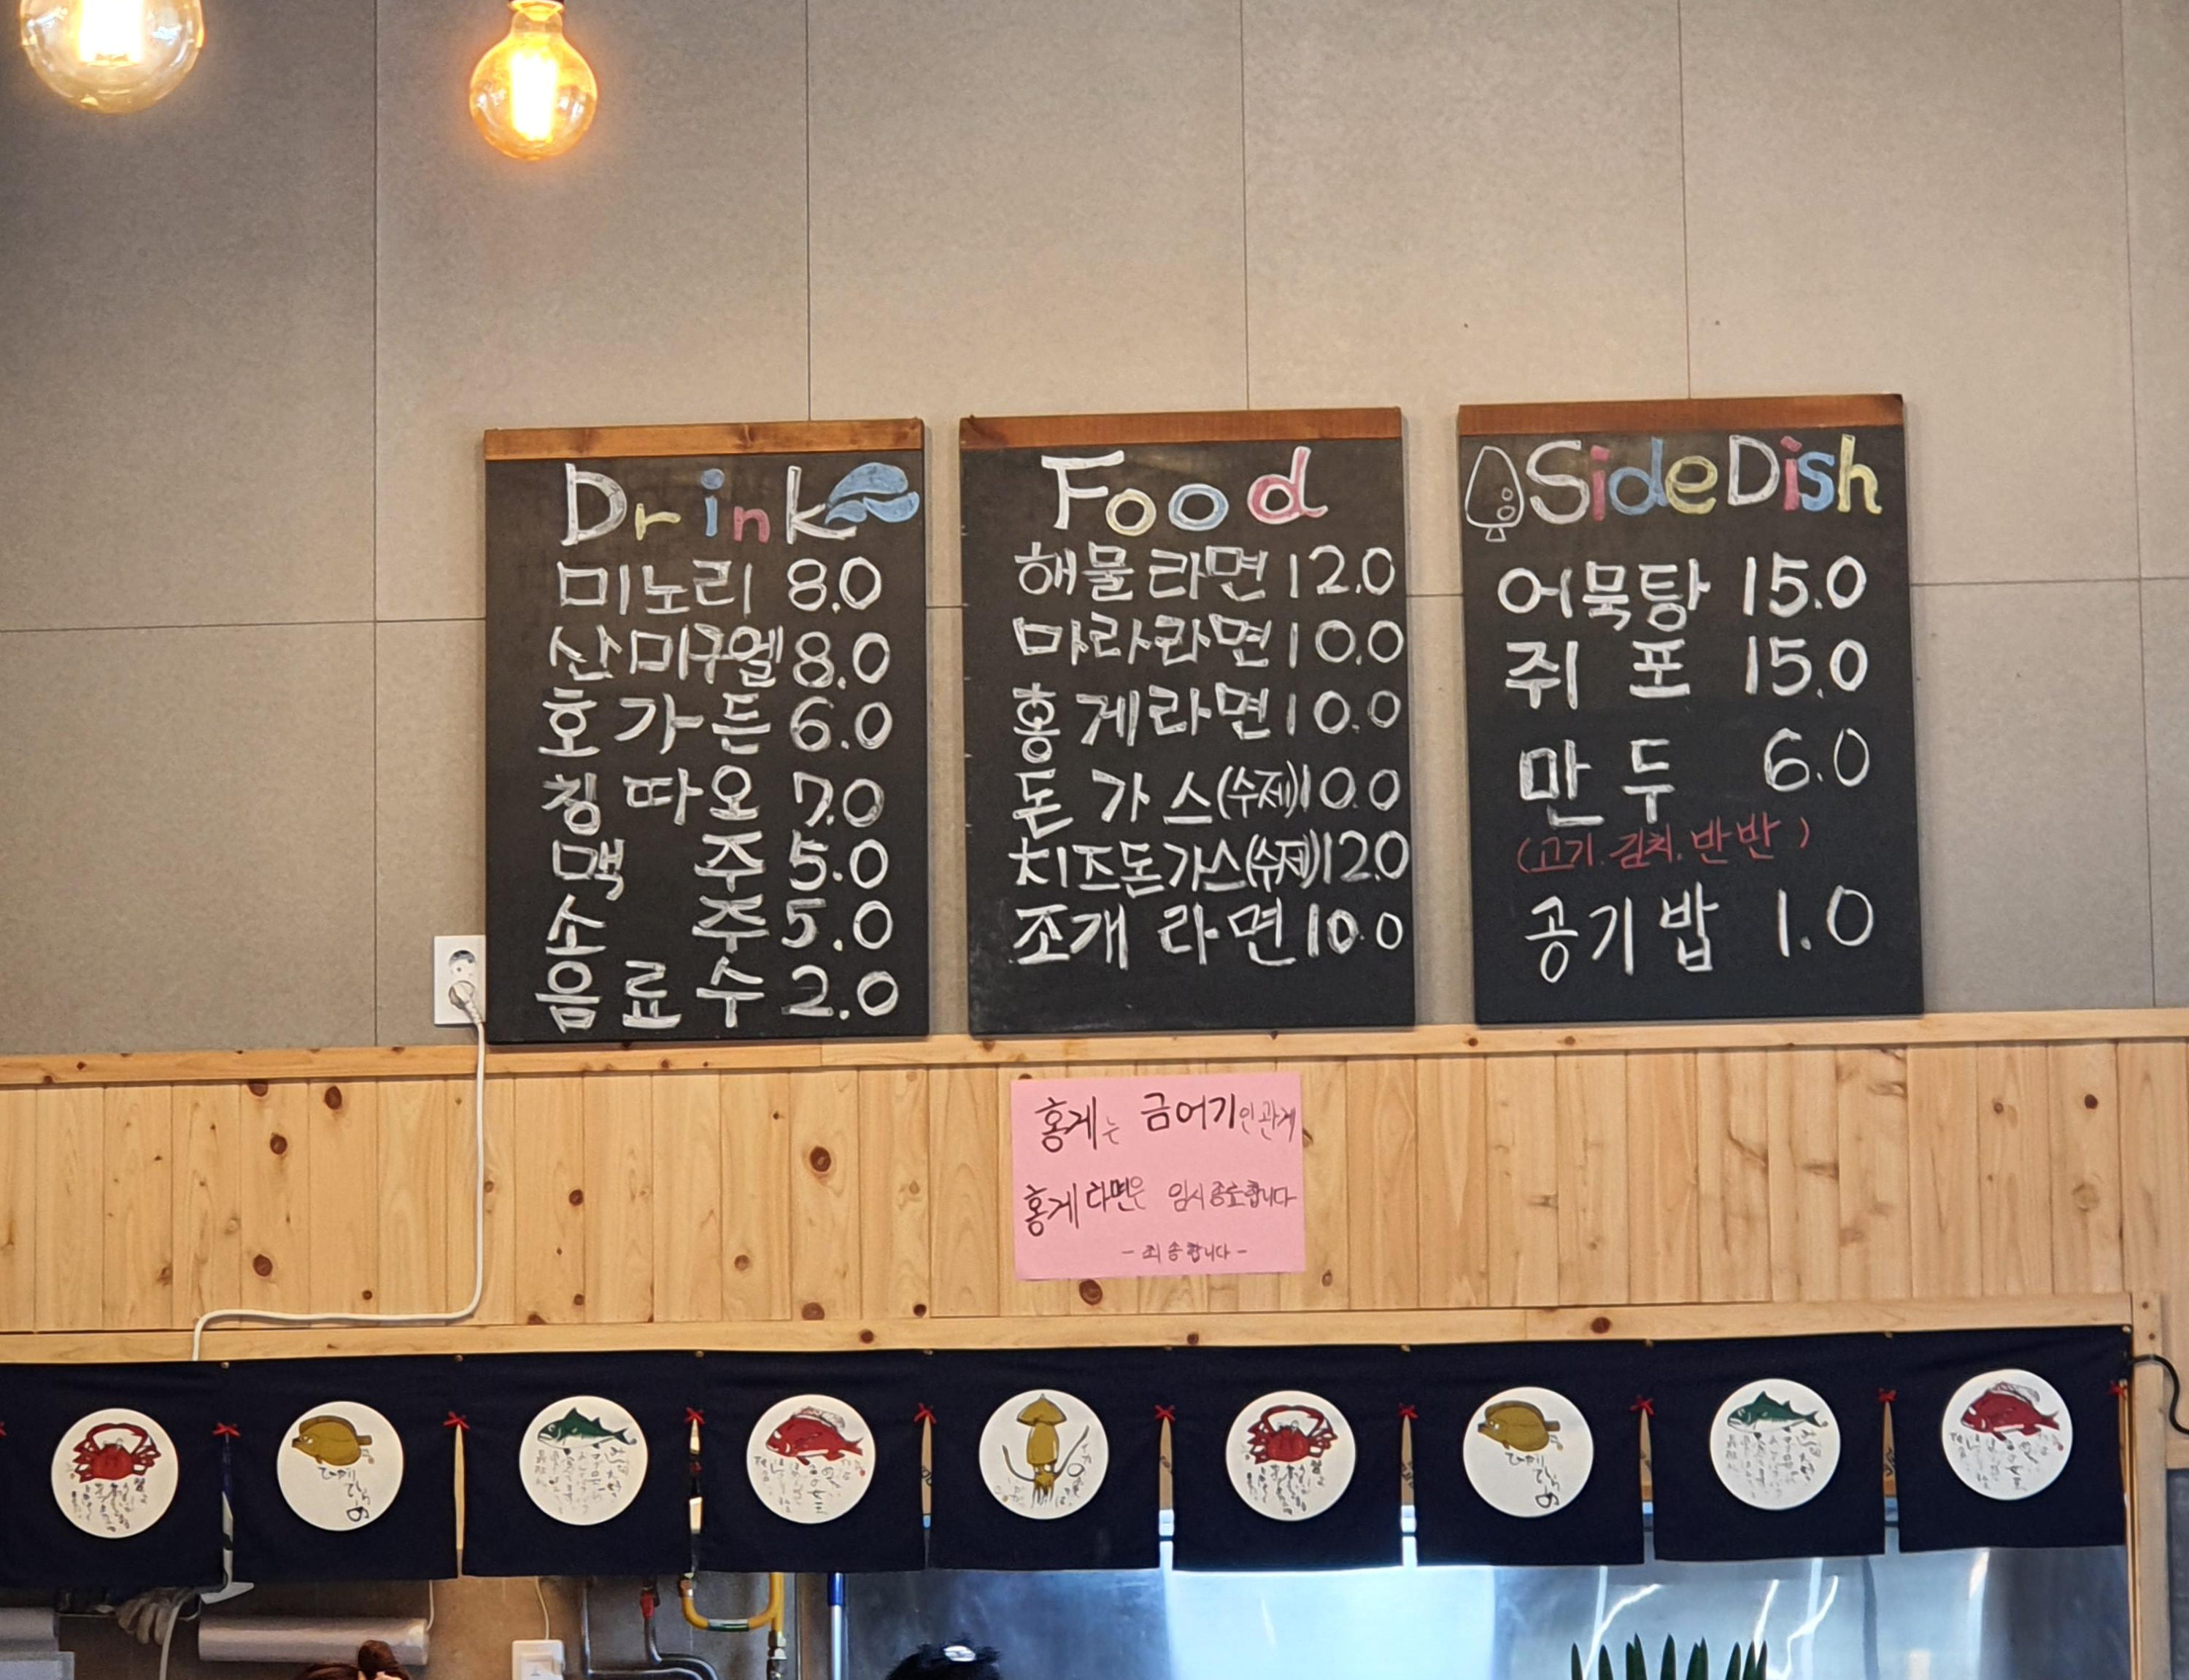 Drink
미노리 8.0
산미구엘 8.0
호가든 6.0
칭따오 7.0
맥주 5.0
소주 5.0
음료수 2.0
Food
해물라면 12.0
마라라면 10.0
홍게라면 10.0
돈가스(수제) 10.0
치즈돈가스(수제) 12.0
조개라면 10.0
Side Dish
어묵탕 15.0
쥐포 15.0
만두 6.0
(고기.김치.반반)
공기밥 1.0
홍게는 금어기인관계
홍게라면은 임시종료합니다
-죄송합니다-